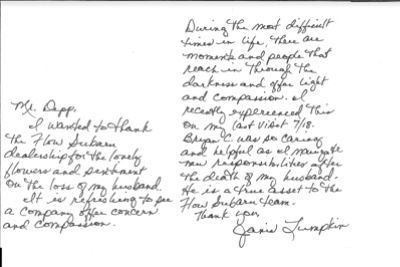 Mr. Depp,
I wanted to thank
the Flow Subaru
dealership for the lovely
flowers and sentiment
on the loss of my husband.
It is refreshing to see
a company offer concern
and compassion.
During the most difficult
times in life, there are
moments and people that
reach in through the
darkness and offer light
and compassion. I
recently experienced this
on my last visit 7/18.
Bryan C. was so caring
and helpful as I navigate
new responsibilities after
the death of my husband.
He is a true asset to the
Flow Subaru team.
Thank you,
Janie Lumpkin